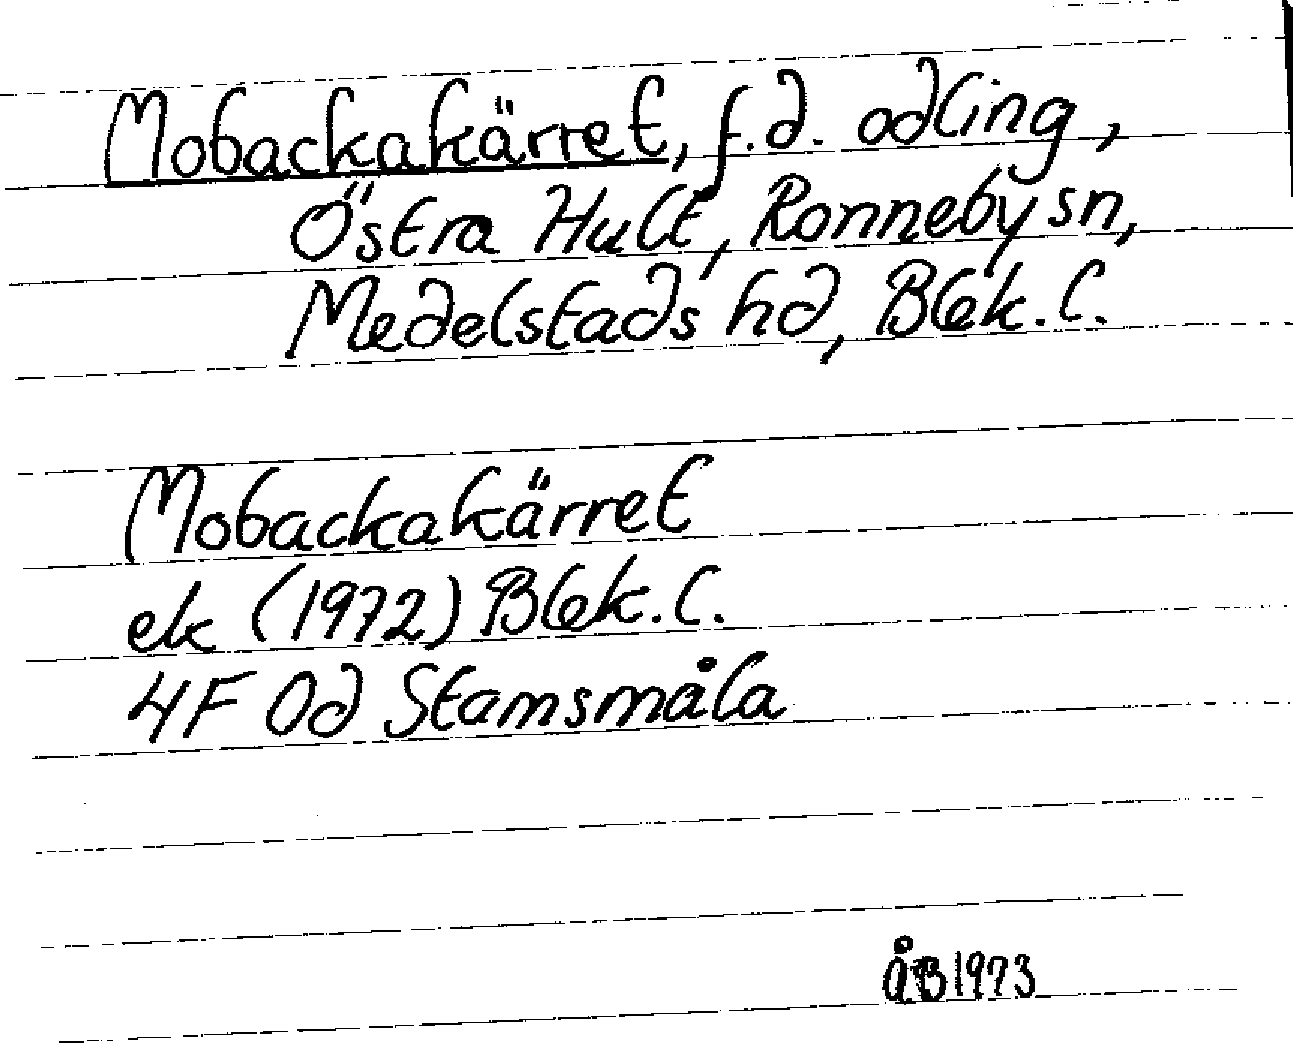 Mobackakärret, f.d. odling,
Östra Hult, Ronneby sn,
Medelstads hd, Blek. l.
Mobackakärret
ek (1972) Blek. l.
4F 0d Stamsmåla
ÅB 1973